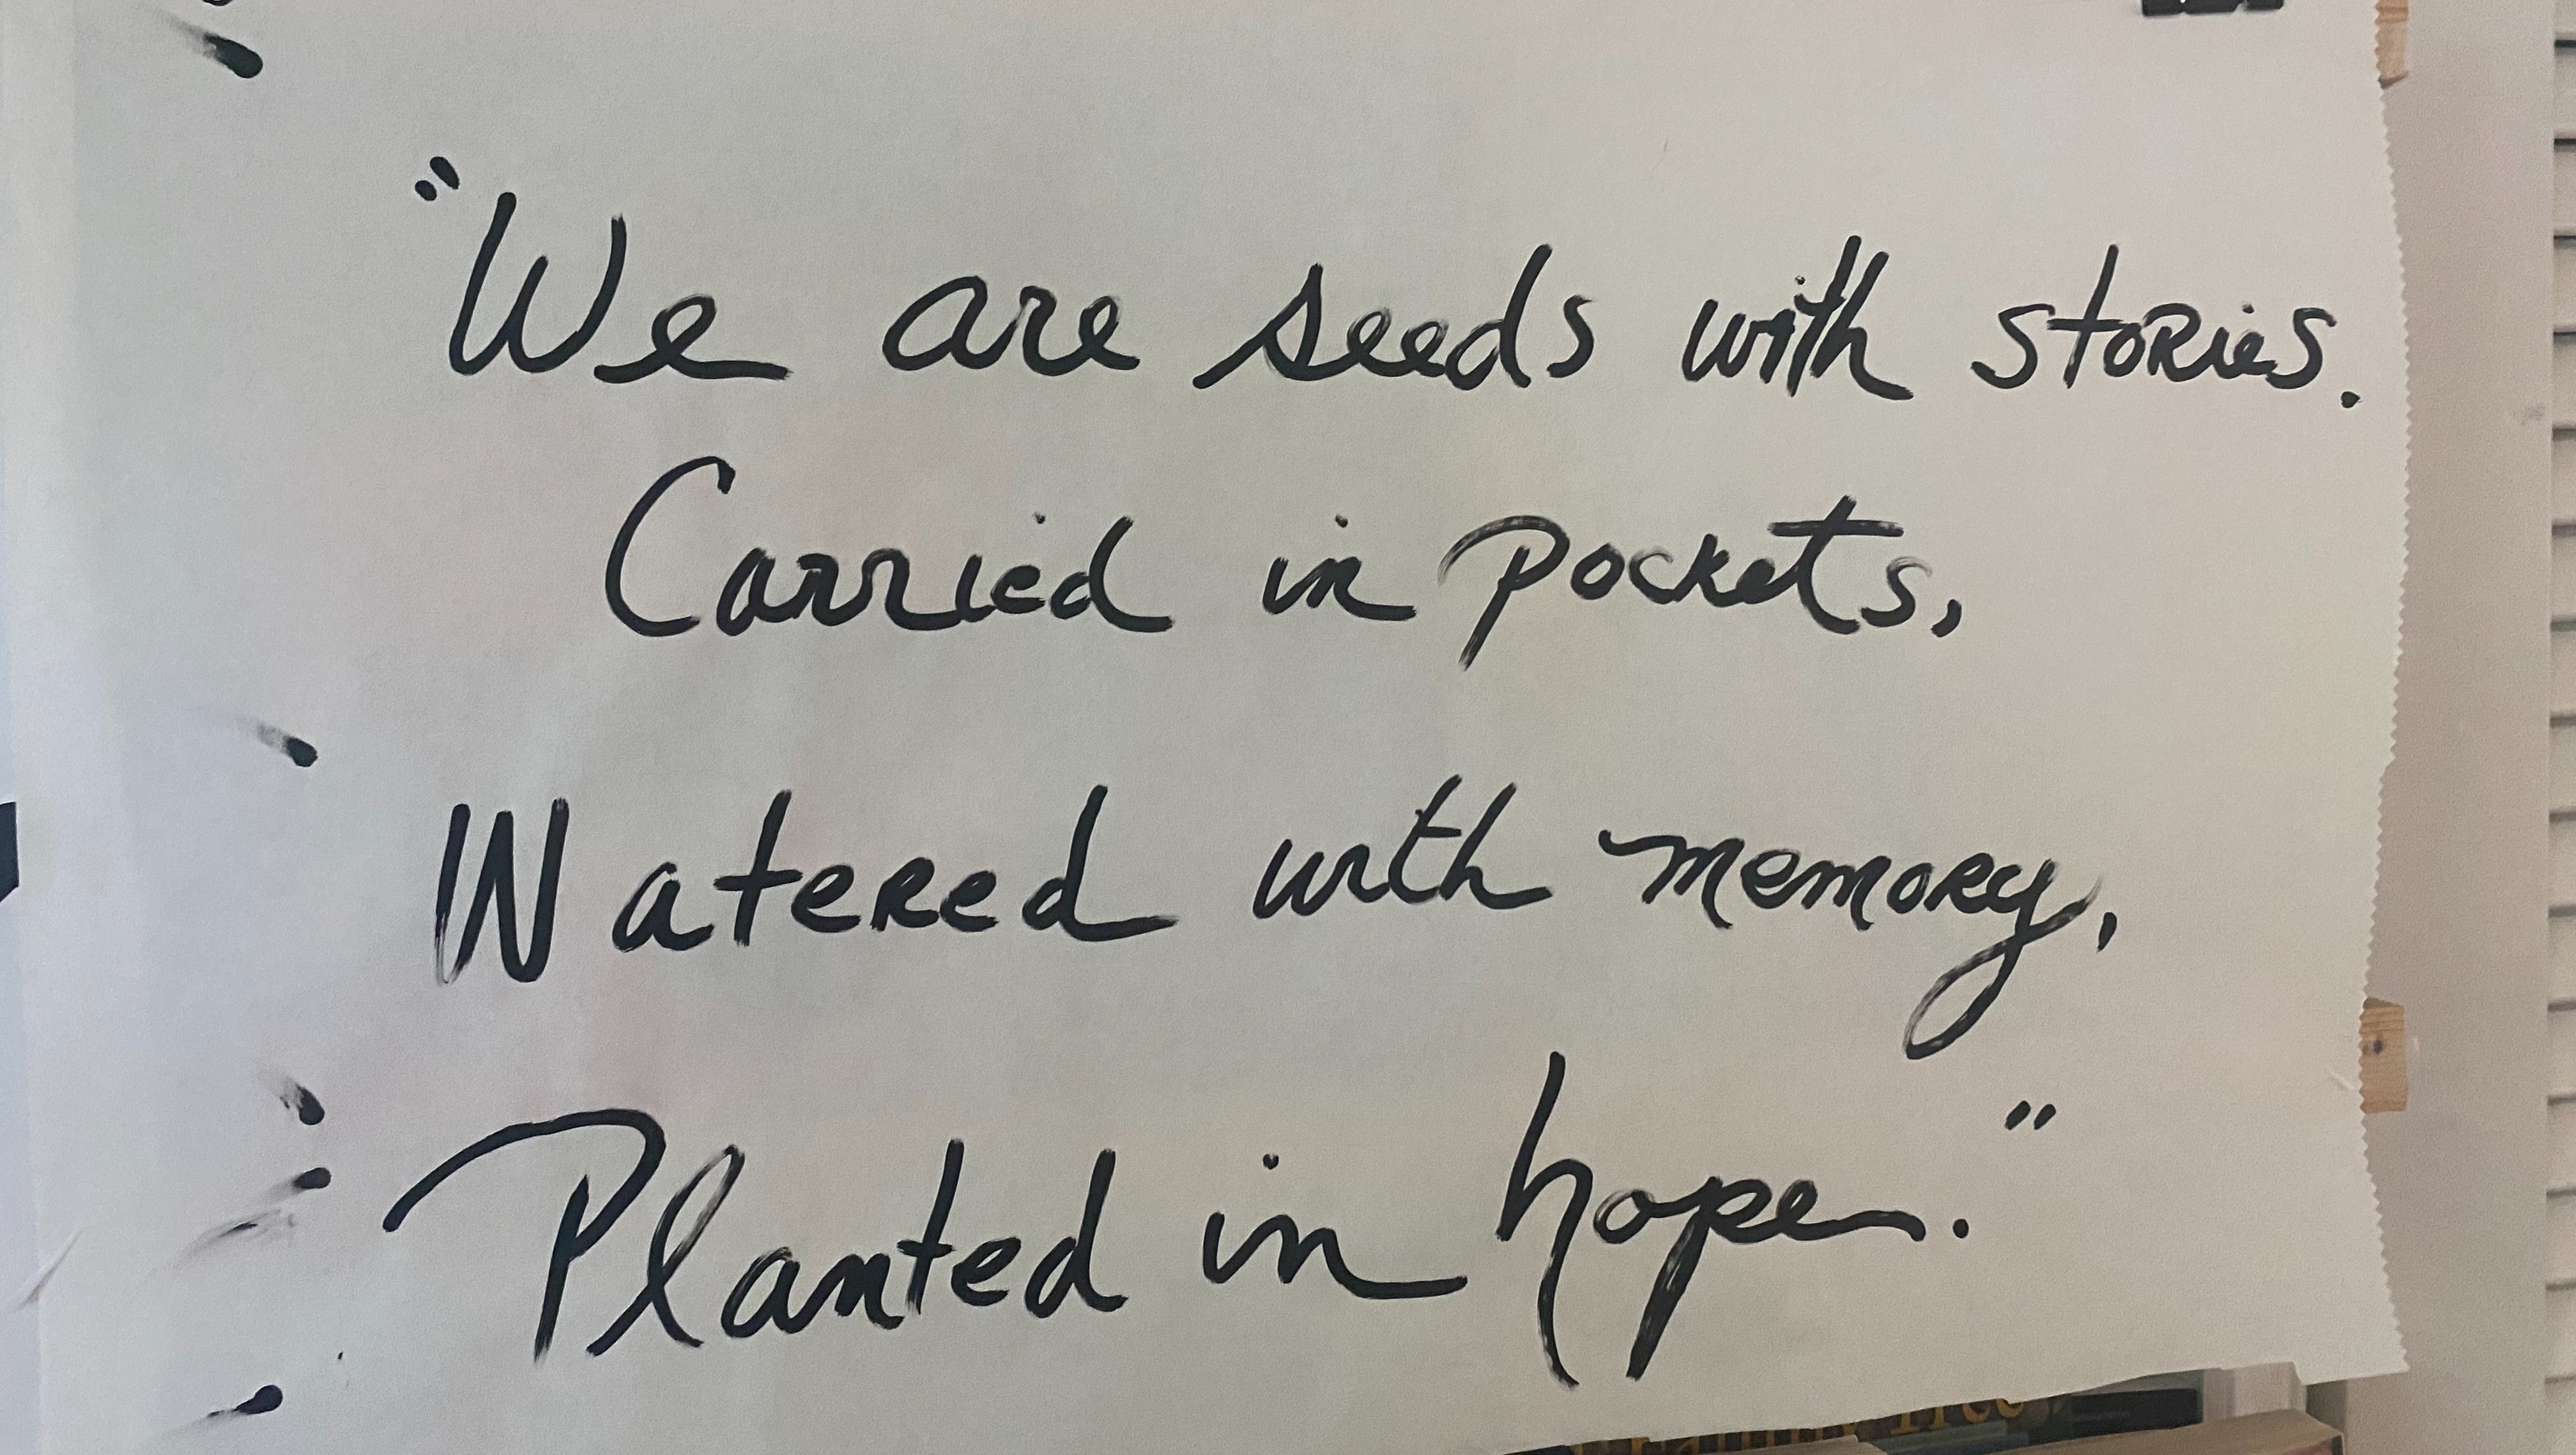 "We are seeds with stories.
Carried in pockets,
Watered with memory,
Planted in hope."